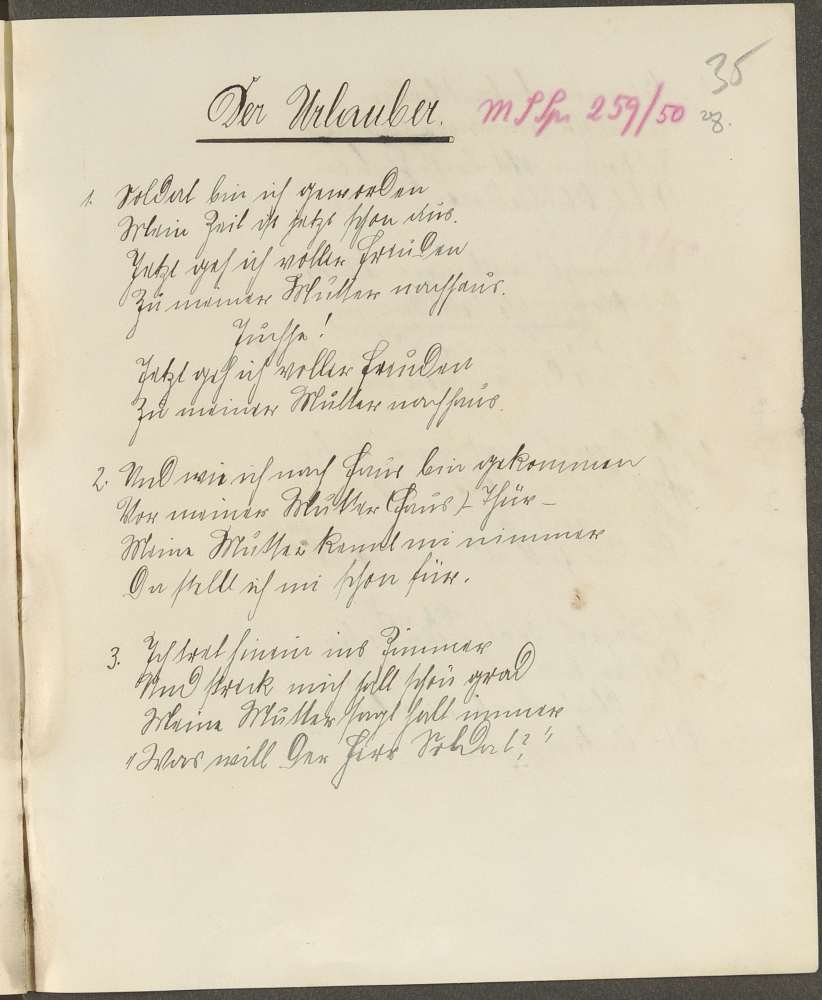 35
Der Urlauber. M S Sp. 259/50
1. Soldat bin ich geworden
Mein Zeil ist jetzt schon aus.
Jetzt geh ich voller Freuden
Zu meiner Mutter nachhaus.
Juchhe!
Jetzt geh ich voller Freuden
Zu meiner Mutter nachhaus.
2. Und wie ich nach Haus bin gekommen
Vor meiner Mutter (Haus)-Thür –
Meine Mutter kennt mi nimmer
Da stellt ich mi schon für.
3. Ich tret hinein ins Zimmer
Und streck mich halt schön grad
Meine Mutter sagt halt immer
"Was will Der Herr Soldat?"